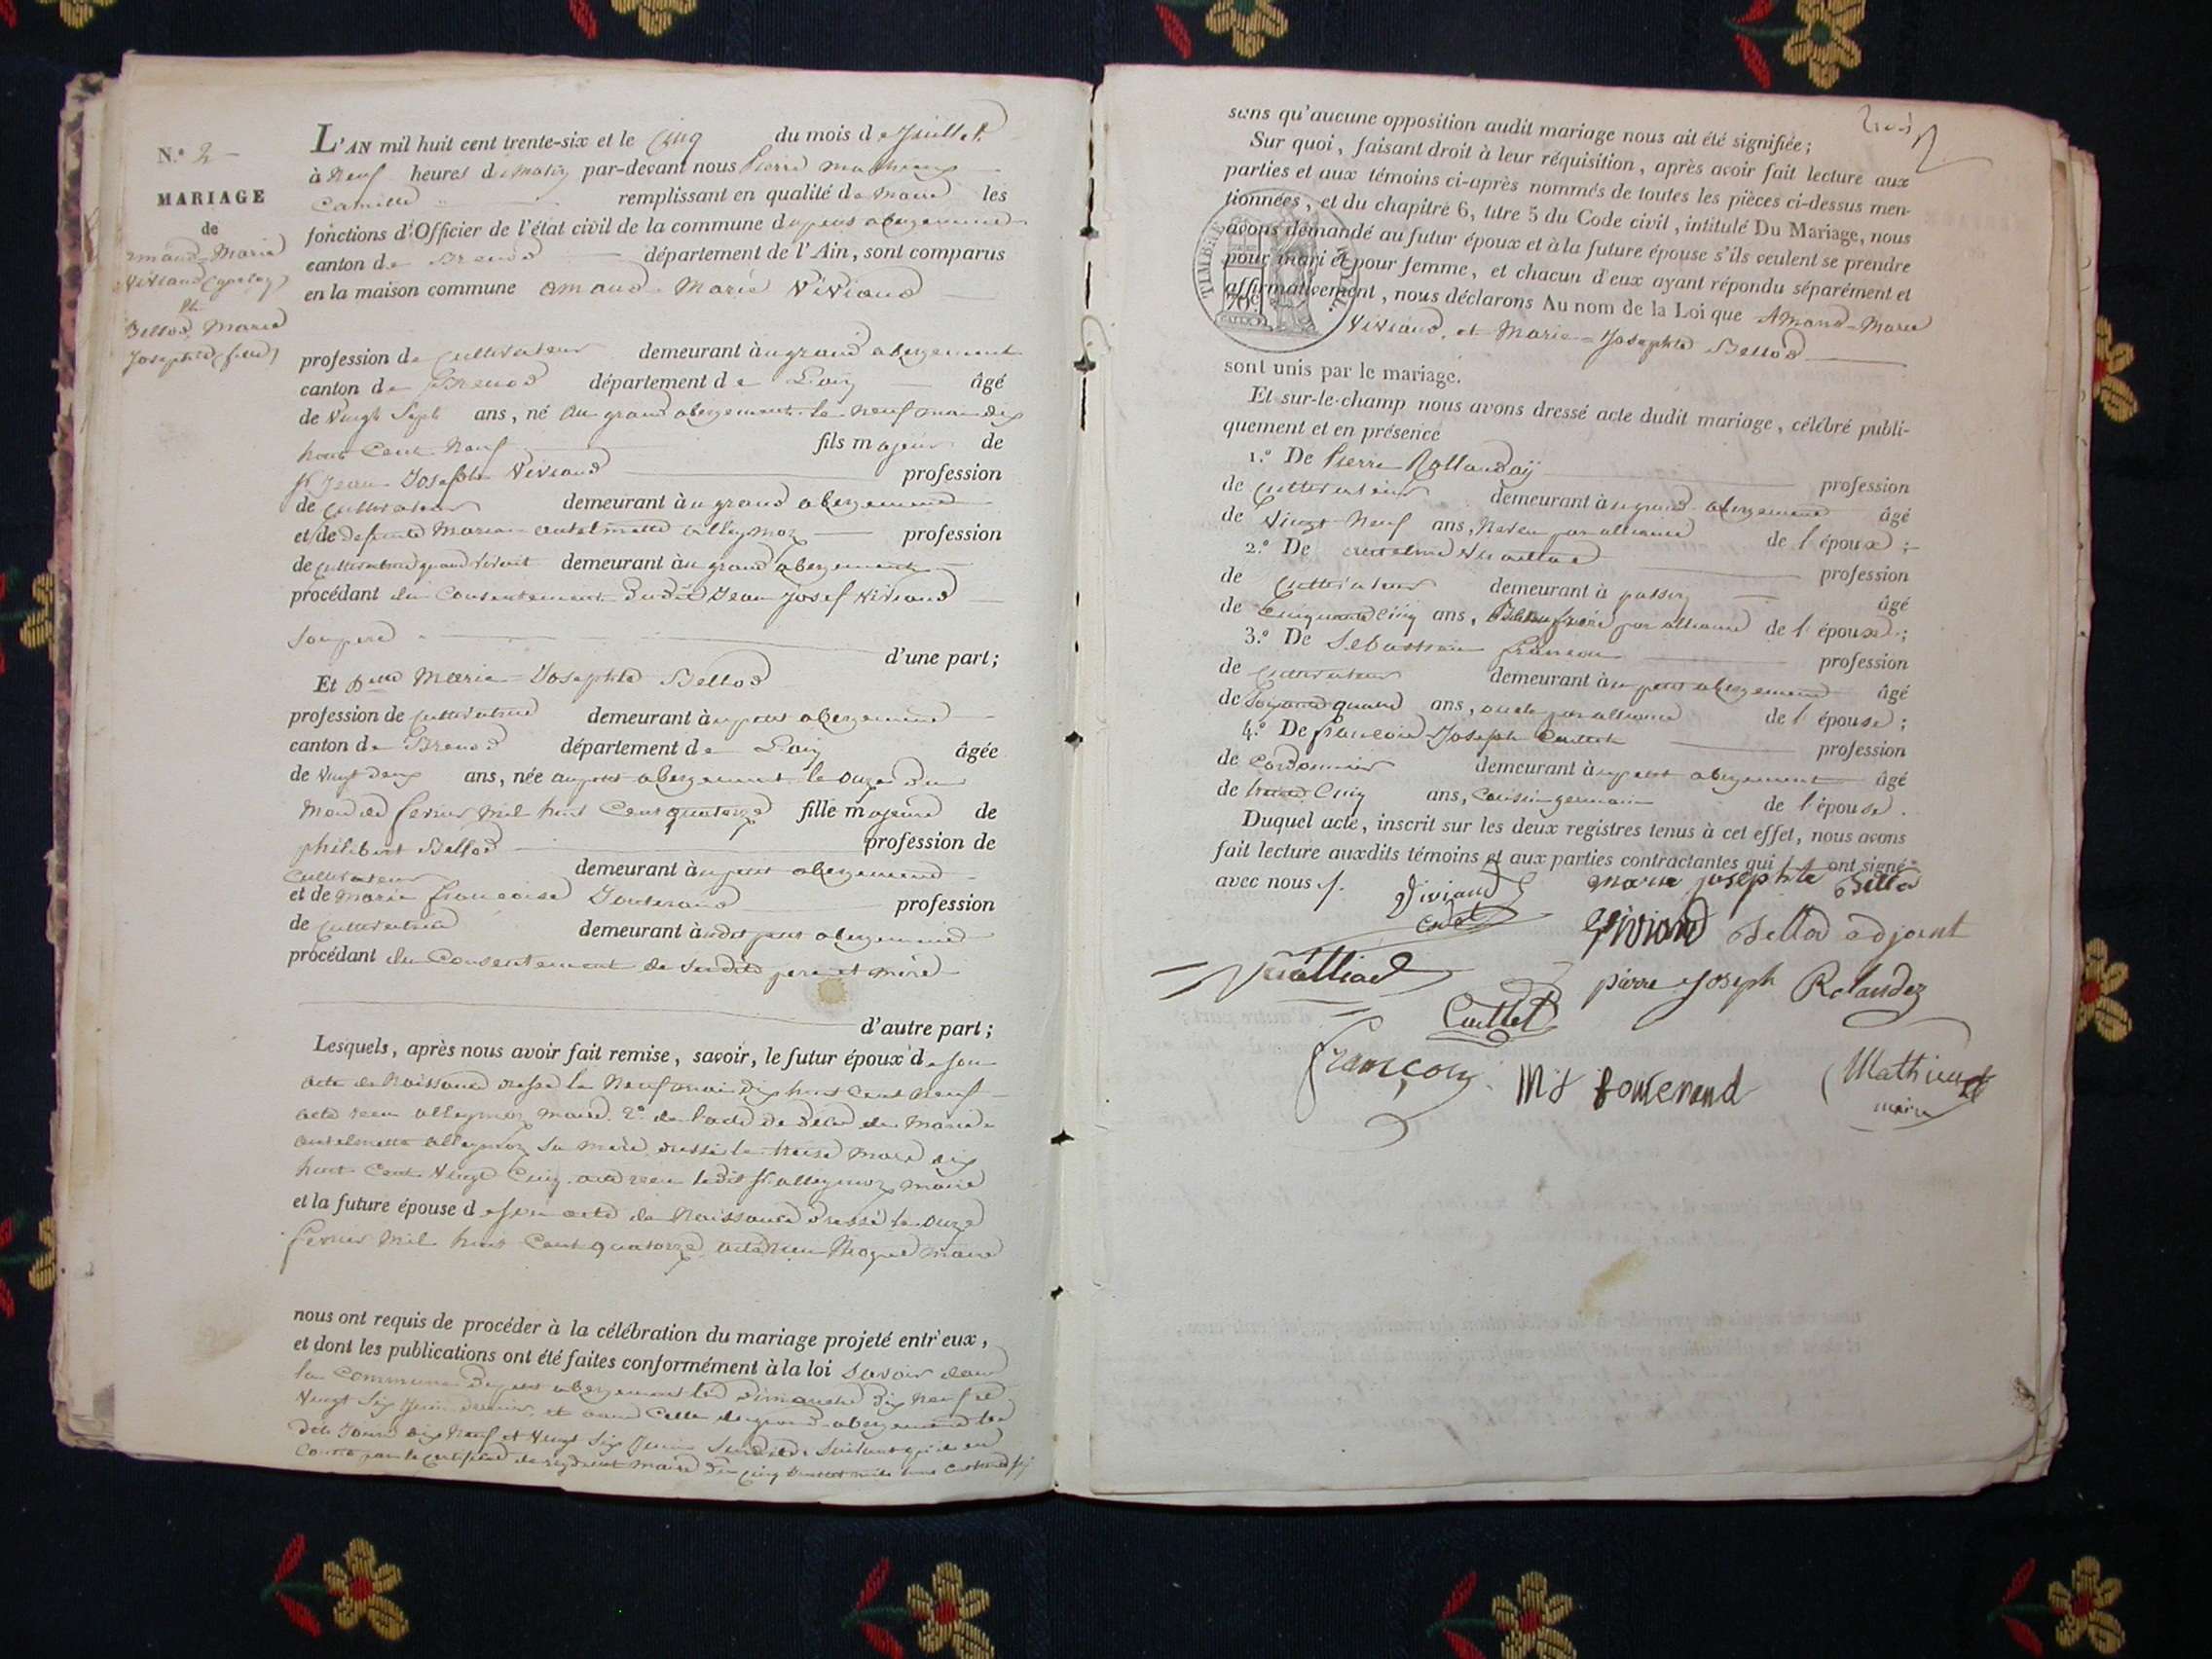 N.° 2
MARIAGE
de
Amand-Marie
Viviand (garçon)
et
Bellod, Marie
Josephte (fille)
L'AN mil huit cent trente-six et le Cinq du mois de Juillet
à Neuf heures du matin par-devant nous Pierre Mathieux
Camille remplissant en qualité de Maire les
fonctions d'Officier de l'état civil de la commune du petit abergement
canton de Brenod département de l'Ain, sont comparus
en la maison commune Amand-Marie Viviand
profession de Cultivateur demeurant au grand abergement
canton de Brenod département de L'ain âgé
de Vingt Sept ans, né au grand abergement le neuf mai dix
huit Cent Neuf fils majeur de
Sr Jean Joseph Viviand profession
de Cultivateur demeurant au grand abergement
et de defunte Marie antelmette alleymoz profession
de Cultivatrice quand vivait demeurant au grand abergement
procédant du Consentement dudit Jean Josef Viviand
Son pere
d'une part;
Et Delle Marie-Josephte Bellod
profession de Cultivatrice demeurant au petit abergement
canton de Brenod département de L'ain âgée
de Vingt deux ans, née au petit abergement le onze du
Mois de fevrier mil huit Cent quatorze fille majeure de
philibert Bellod profession de
Cultivateur demeurant au petit abergement
et de Marie françoise Jouvenand profession
de Cultivatrice demeurant audit petit abergement
procédant du Consentement de Sesdits pere et mère
d'autre part;
Lesquels, après nous avoir fait remise, savoir, le futur époux de son
acte de Naissance dressé le Neuf mai dix huit Cent Neuf
acte reçu alleymoz maire. 2° de l'acte de Décès de Marie
antelmette alleymoz Sa mère dressé le treize mars dix
huit Cent Vingt Cinq acte reçu ledit Sr alleymoz maire
et la future épouse de son acte de Naissance dressé le onze
fevrier Mil huit Cent quatorze acte reçu maire
nous ont requis de procéder à la célébration du mariage projeté entr'eux,
et dont les publications ont été faites conformément à la loi Savoir dans
la Commune du petit abergement les Dimanche dix Neuf et
Vingt Six Juin dernier, et dans Celle du grand-abergement les
dits Jours dix Neuf et Vingt Six Juin Susdits Suivant qu'il en
Conste par le Certificat maire du Cinq
sans qu'aucune opposition audit mariage nous ait été signifiée;
Sur quoi, faisant droit à leur réquisition, après avoir fait lecture aux
parties et aux témoins ci-après nommés de toutes les pièces ci-dessus men-
tionnées, et du chapitre 6, titre 5 du Code civil, intitulé Du Mariage, nous
avons demandé au futur époux et à la future épouse s'ils veulent se prendre
pour mari et pour femme, et chacun d'eux ayant répondu séparément et
affirmativement, nous déclarons Au nom de la Loi que Amand-Marie
Viviand, et Marie-Josephte Bellod
sont unis par le mariage.
Et sur-le-champ nous avons dressé acte dudit mariage, célébré publi-
quement et en présence
1.° De Pierre profession
de Cultivateur demeurant au grand abergement âgé
de Vingt Neuf ans, Neveu par alliance de l'époux;
2.° De antelme profession
de Cultivateur demeurant à passin âgé
de Cinquante Cinq ans, Beau frère par alliance de l'époux;
3.° De Sebastien françon profession
de Cultivateur demeurant au petit abergement âgé
de Soixante quatre ans, oncle par alliance de l'épouse;
4.° De françois Joseph Caillet profession
de Cordonnier demeurant au petit abergement âgé
de trente Cinq ans, Cousin germain de l'épouse.
Duquel acte, inscrit sur les deux registres tenus à cet effet, nous avons
fait lecture auxdits témoins et aux parties contractantes qui ont signé
avec nous
Viviand
marie josephte Bellod
Viviand Bellod adjoint
pierre joseph Rolandez
Caillet
françon
Mathieux
maire
TIMBRE ROYAL
70c